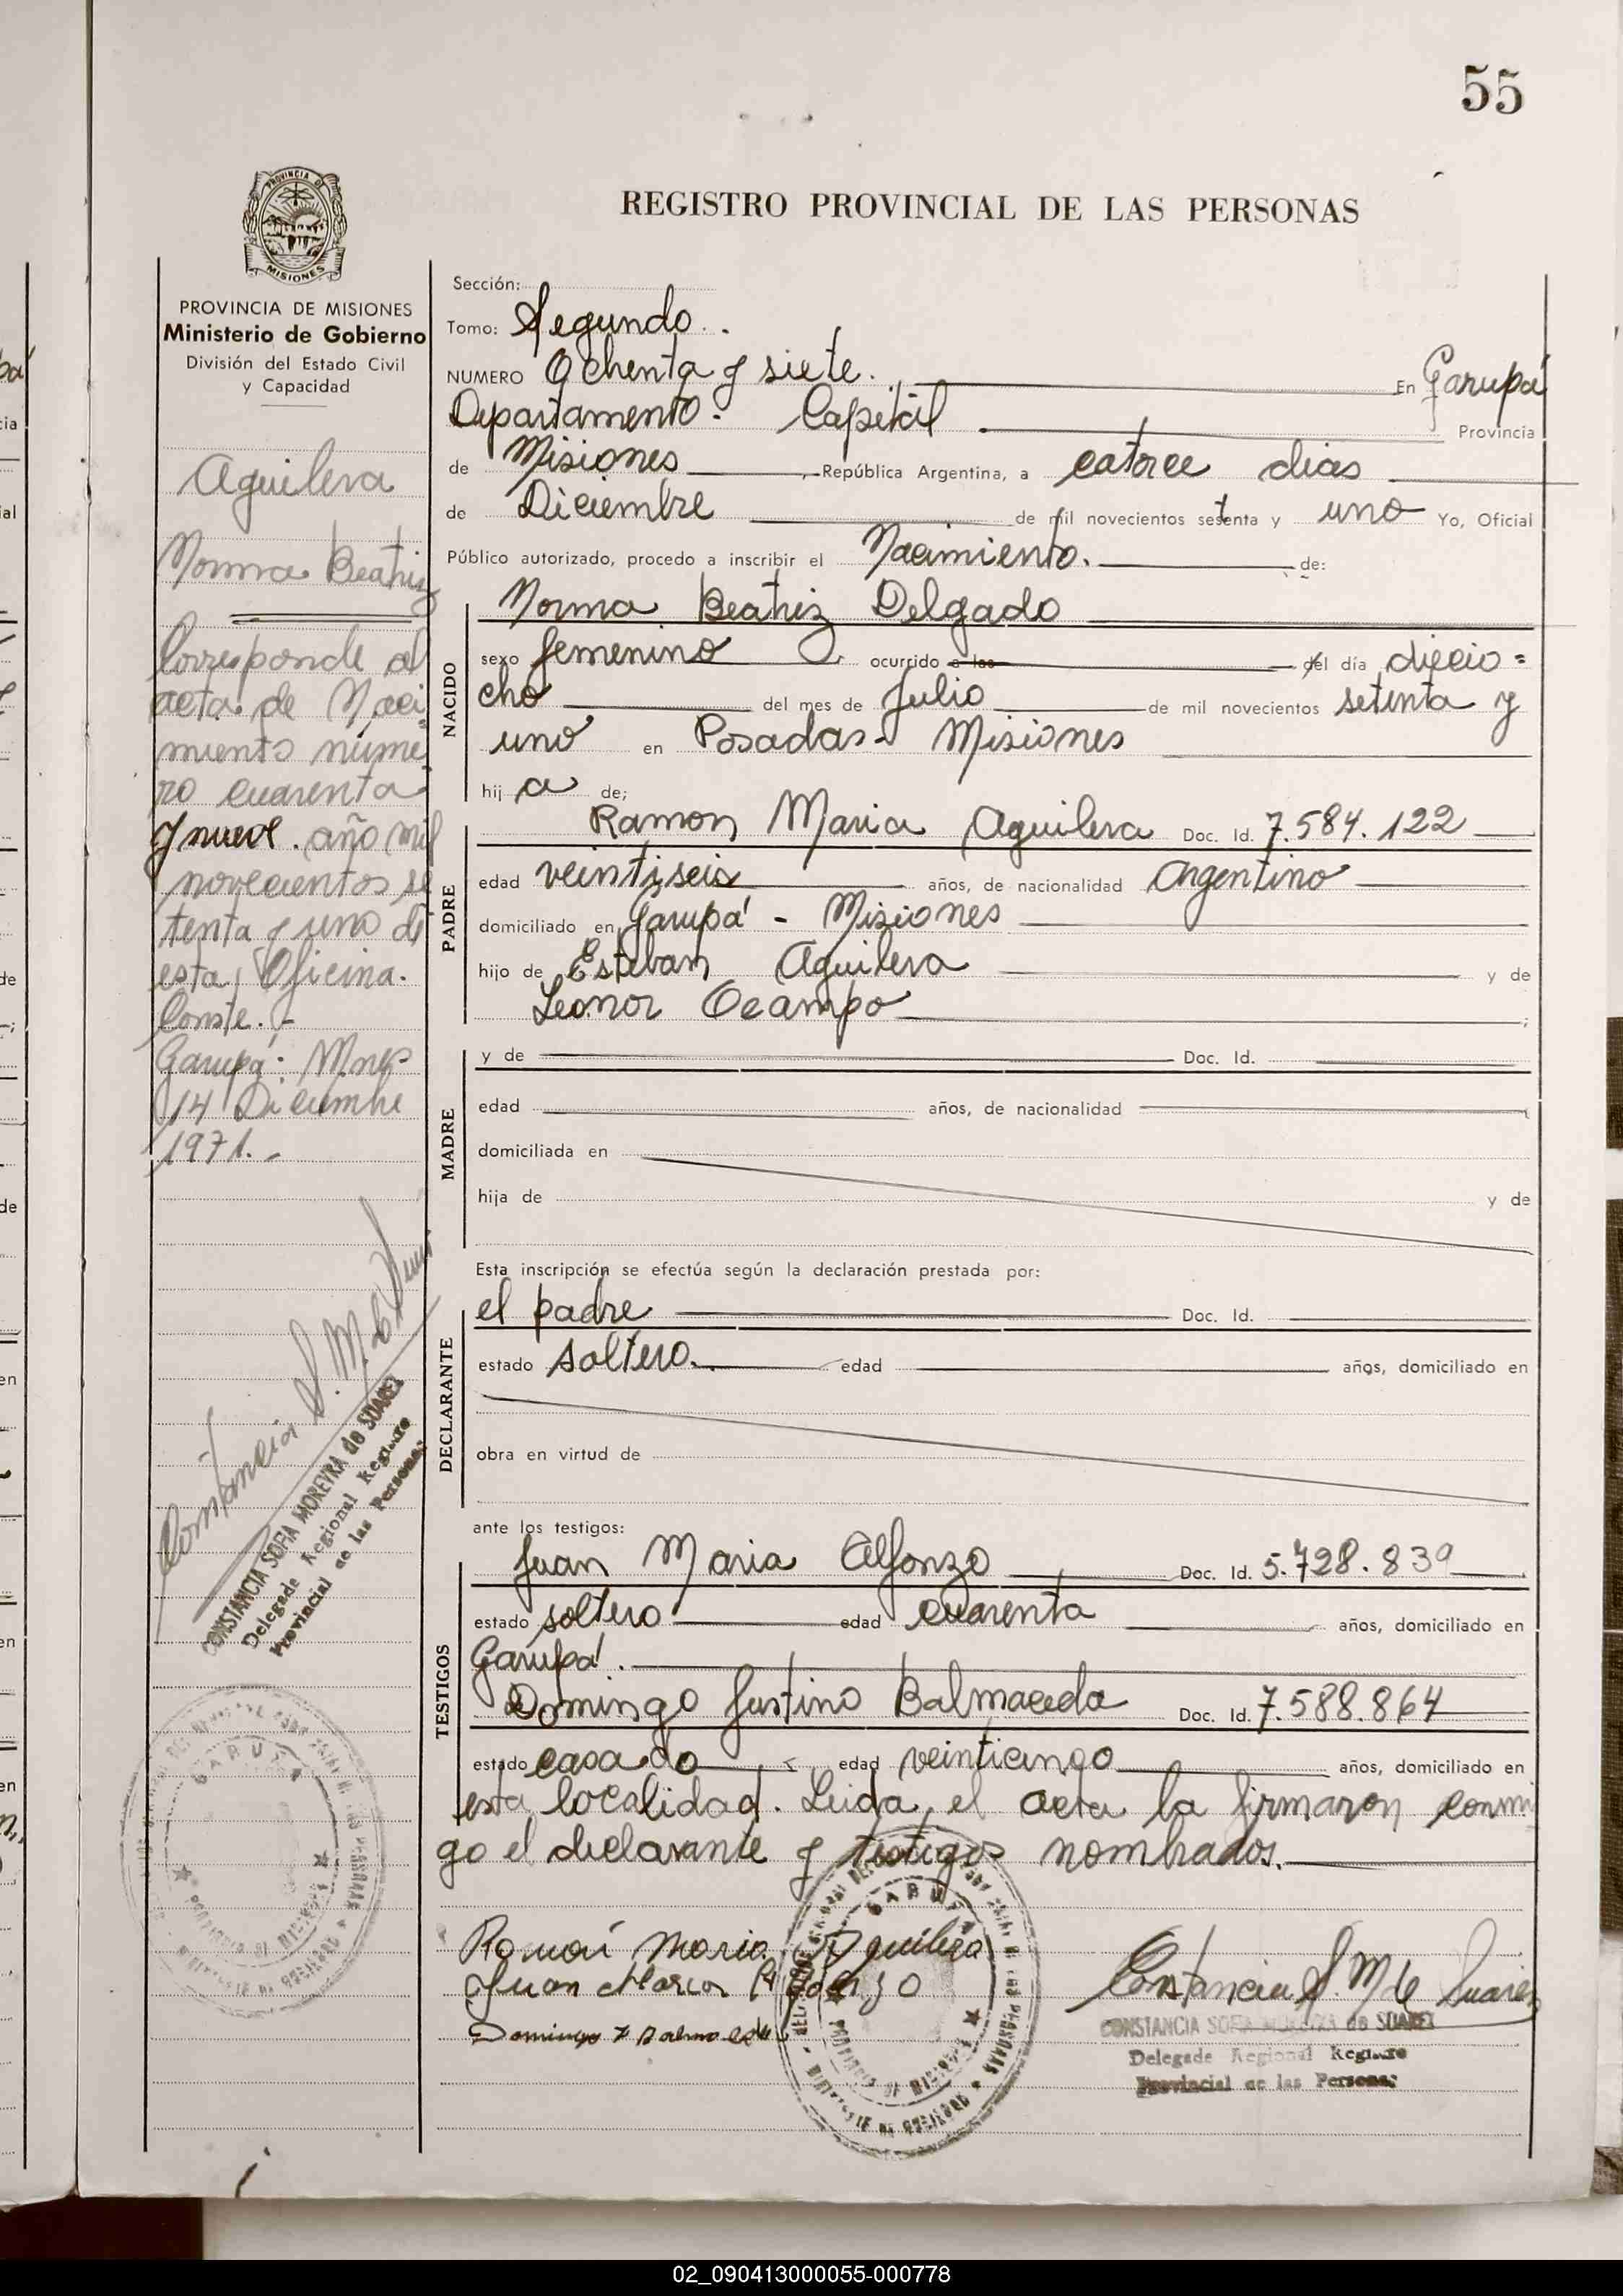 55
REGISTRO PROVINCIAL DE LAS PERSONAS
PROVINCIA DE
MISIONES
PROVINCIA DE MISIONES
Ministerio de Gobierno
División del Estado Civil
y Capacidad
Aguilera
Norma Beatriz
Corresponde al
acta de Naci
miento núme
ro cuarenta
y nueve. año mil
novecientos se
tenta y uno de
esta Oficina.
Conste.-
Garupá: Mnes
14 Diciembre
1971.-
Constancia S. M. de
CONSTANCIA SOFIA MOREYRA de SUAREZ
Delegade Regional Registro
Provincial de las Personas
GARUPA
Sección:
Tomo: Segundo.
NUMERO Ochenta y siete. En Garupá
Departamento- Capital Provincia
de Misiones, República Argentina, a catorce dias
de Diciembre de mil novecientos setenta y uno Yo, Oficial
Público autorizado, procedo a inscribir el Nacimiento. de:
NACIDO
Norma Beatriz Delgado
sexo femenino ocurrido a las del día diecio=
cho del mes de Julio de mil novecientos setenta y
uno en Posadas- Misiones
hij a de;
PADRE
Ramon Maria Aguilera Doc. Id. 7.584.122
edad veintiseis años, de nacionalidad Argentino
domiciliado en Garupá - Misiones
hijo de Esteban Aguilera y de
Leonor Ocampo ;
MADRE
y de Doc. Id.
edad años, de nacionalidad
domiciliada en
hija de y de
Esta inscripción se efectúa según la declaración prestada por:
DECLARANTE
el padre Doc. Id.
estado soltero. edad años, domiciliado en
obra en virtud de
ante los testigos:
TESTIGOS
Juan Maria Alfonzo Doc. Id. 5.728.839
estado soltero edad cuarenta años, domiciliado en
Garupá.
Domingo Justino Balmaceda Doc. Id. 7.588.864
estado casado edad veinticinco años, domiciliado en
esta localidad. Leida, el acta la firmaron conmi
go el declarante y testigos nombrados.
Ramón Maria Aguilera
Juan Maria Alfonzo
Domingo J Balmaceda
GARUPA
Constancia S. M. de Suarez
CONSTANCIA SOFIA MOREYRA de SUAREZ
Delegade Regional Registro
Provincial de las Personas
02_090413000055-000778